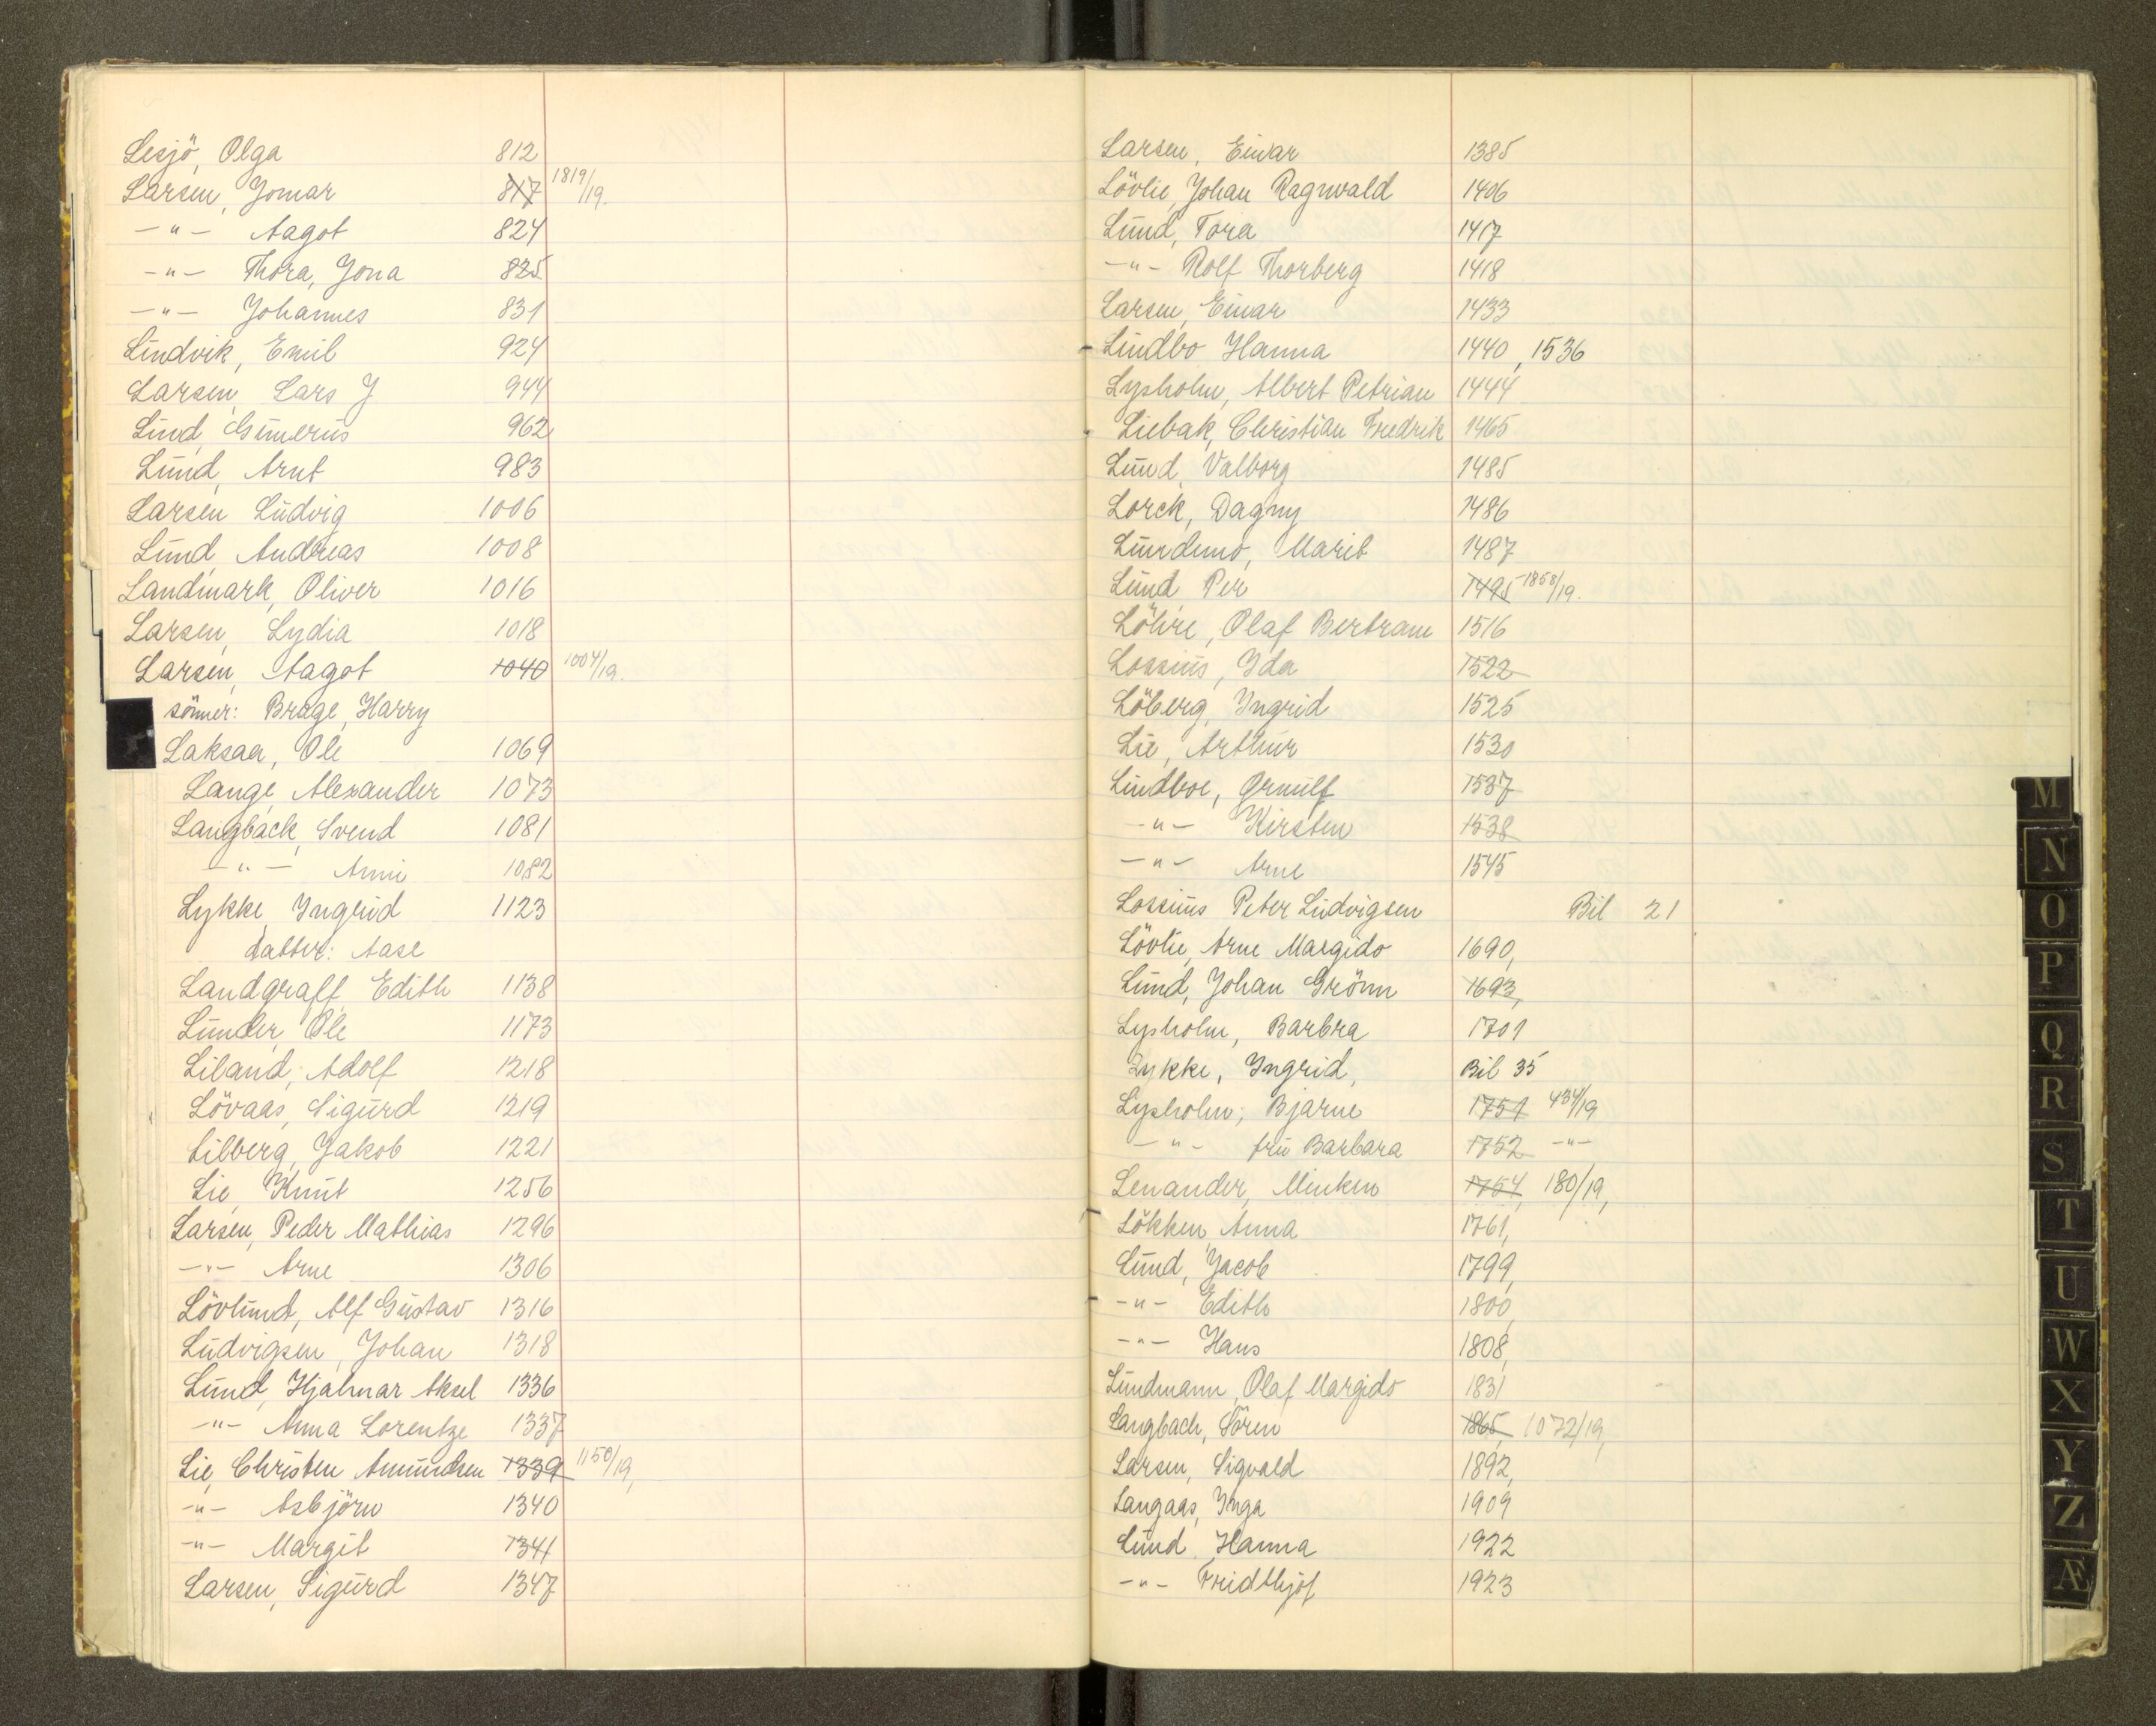 Lesjö, Olga 812
Larsen, Jomar 817 1819/19.
-"- Aagot 824
-"- Thora, Jona 825
-"- Johannes 831
Lindvik, Emil 924
Larsen, Lars J 944
Lund, Gunerius 962
Lund, Arnt 983
Larsen Ludvig 1006
Lund, Andreas 1008
Landmark, Oliver 1016
Larsen, Lydia 1018
Larsen, Aagot 1040 1004/19.
sönner: Brage, Harry
Laksaa, Ole 1069
Lange, Alexander 1073
Langback, Svend 1081
-"- Anni 1082
Lykke, Ingrid 1123
datter: Aase
Landgraff, Edith 1138
Lunder, Ole 1173
Liland, Adolf 1218
Lövaas, Sigurd 1219
Lilberg, Jakob 1221
Lie, Knut 1256
Larsen, Peder Mathias 1296
-"- Arne 1306
Lövlund, Alf Gustav 1316
Ludvigsen, Johan 1318
Lund, Hjalmar Aksel 1336
-"- Anna Lorentze 1337
Lie, Christen Amundsen 1339 1150/19,
-"- Asbjörn 1340
-"- Margit 1341
Larsen, Sigurd 1347
Larsen, Einar 1385
Lövlie, Johan Ragnvald 1406
Lund, Tora 1417
-"- Rolf Thorberg 1418
Larsen, Einar 1433
Lindbo Hanna 1440, 1536
Lysholm, Albert Petrian 1444
Liebak, Christian Fredrik 1465
Lund, Valborg 1485
Lorck, Dagny 1486
Lundemo, Marit 1487
Lund, Per 1495 1858/19.
Löhre, Olaf Bertram 1516
Lossius, Ida 1522
Löberg, Ingrid 1525
Lie, Arthur 1530
Lindboe, Ørnulf 1537
-"- Kirsten 1538
-"- Arne 1545
Lossius Peter Ludvigsen Bil 21
Lövlie, Arne Margido 1690,
Lund, Johan Grönn 1693,
Lysholm, Barbra 1701
Lykke, Ingrid, Bil 35
Lysholm, Bjarne 1751 434/19
-"- fru Barbara 1752 -"-
Lenander, Minken 1754, 180/19,
Lökken, Anna 1761,
Lund, Jacob 1799,
-"- Edith 1800,
-"- Hans 1808,
Lundmann, Olaf Margido 1831
Langbach, Sören 1865, 1072/19,
Larsen, Sigvald 1892,
Langaas, Inga 1909
Lund, Hanna 1922
-"- Fridthjof 1923
M
N
O
P
Q
R
S
T
U
W
X
Y
Z
Æ